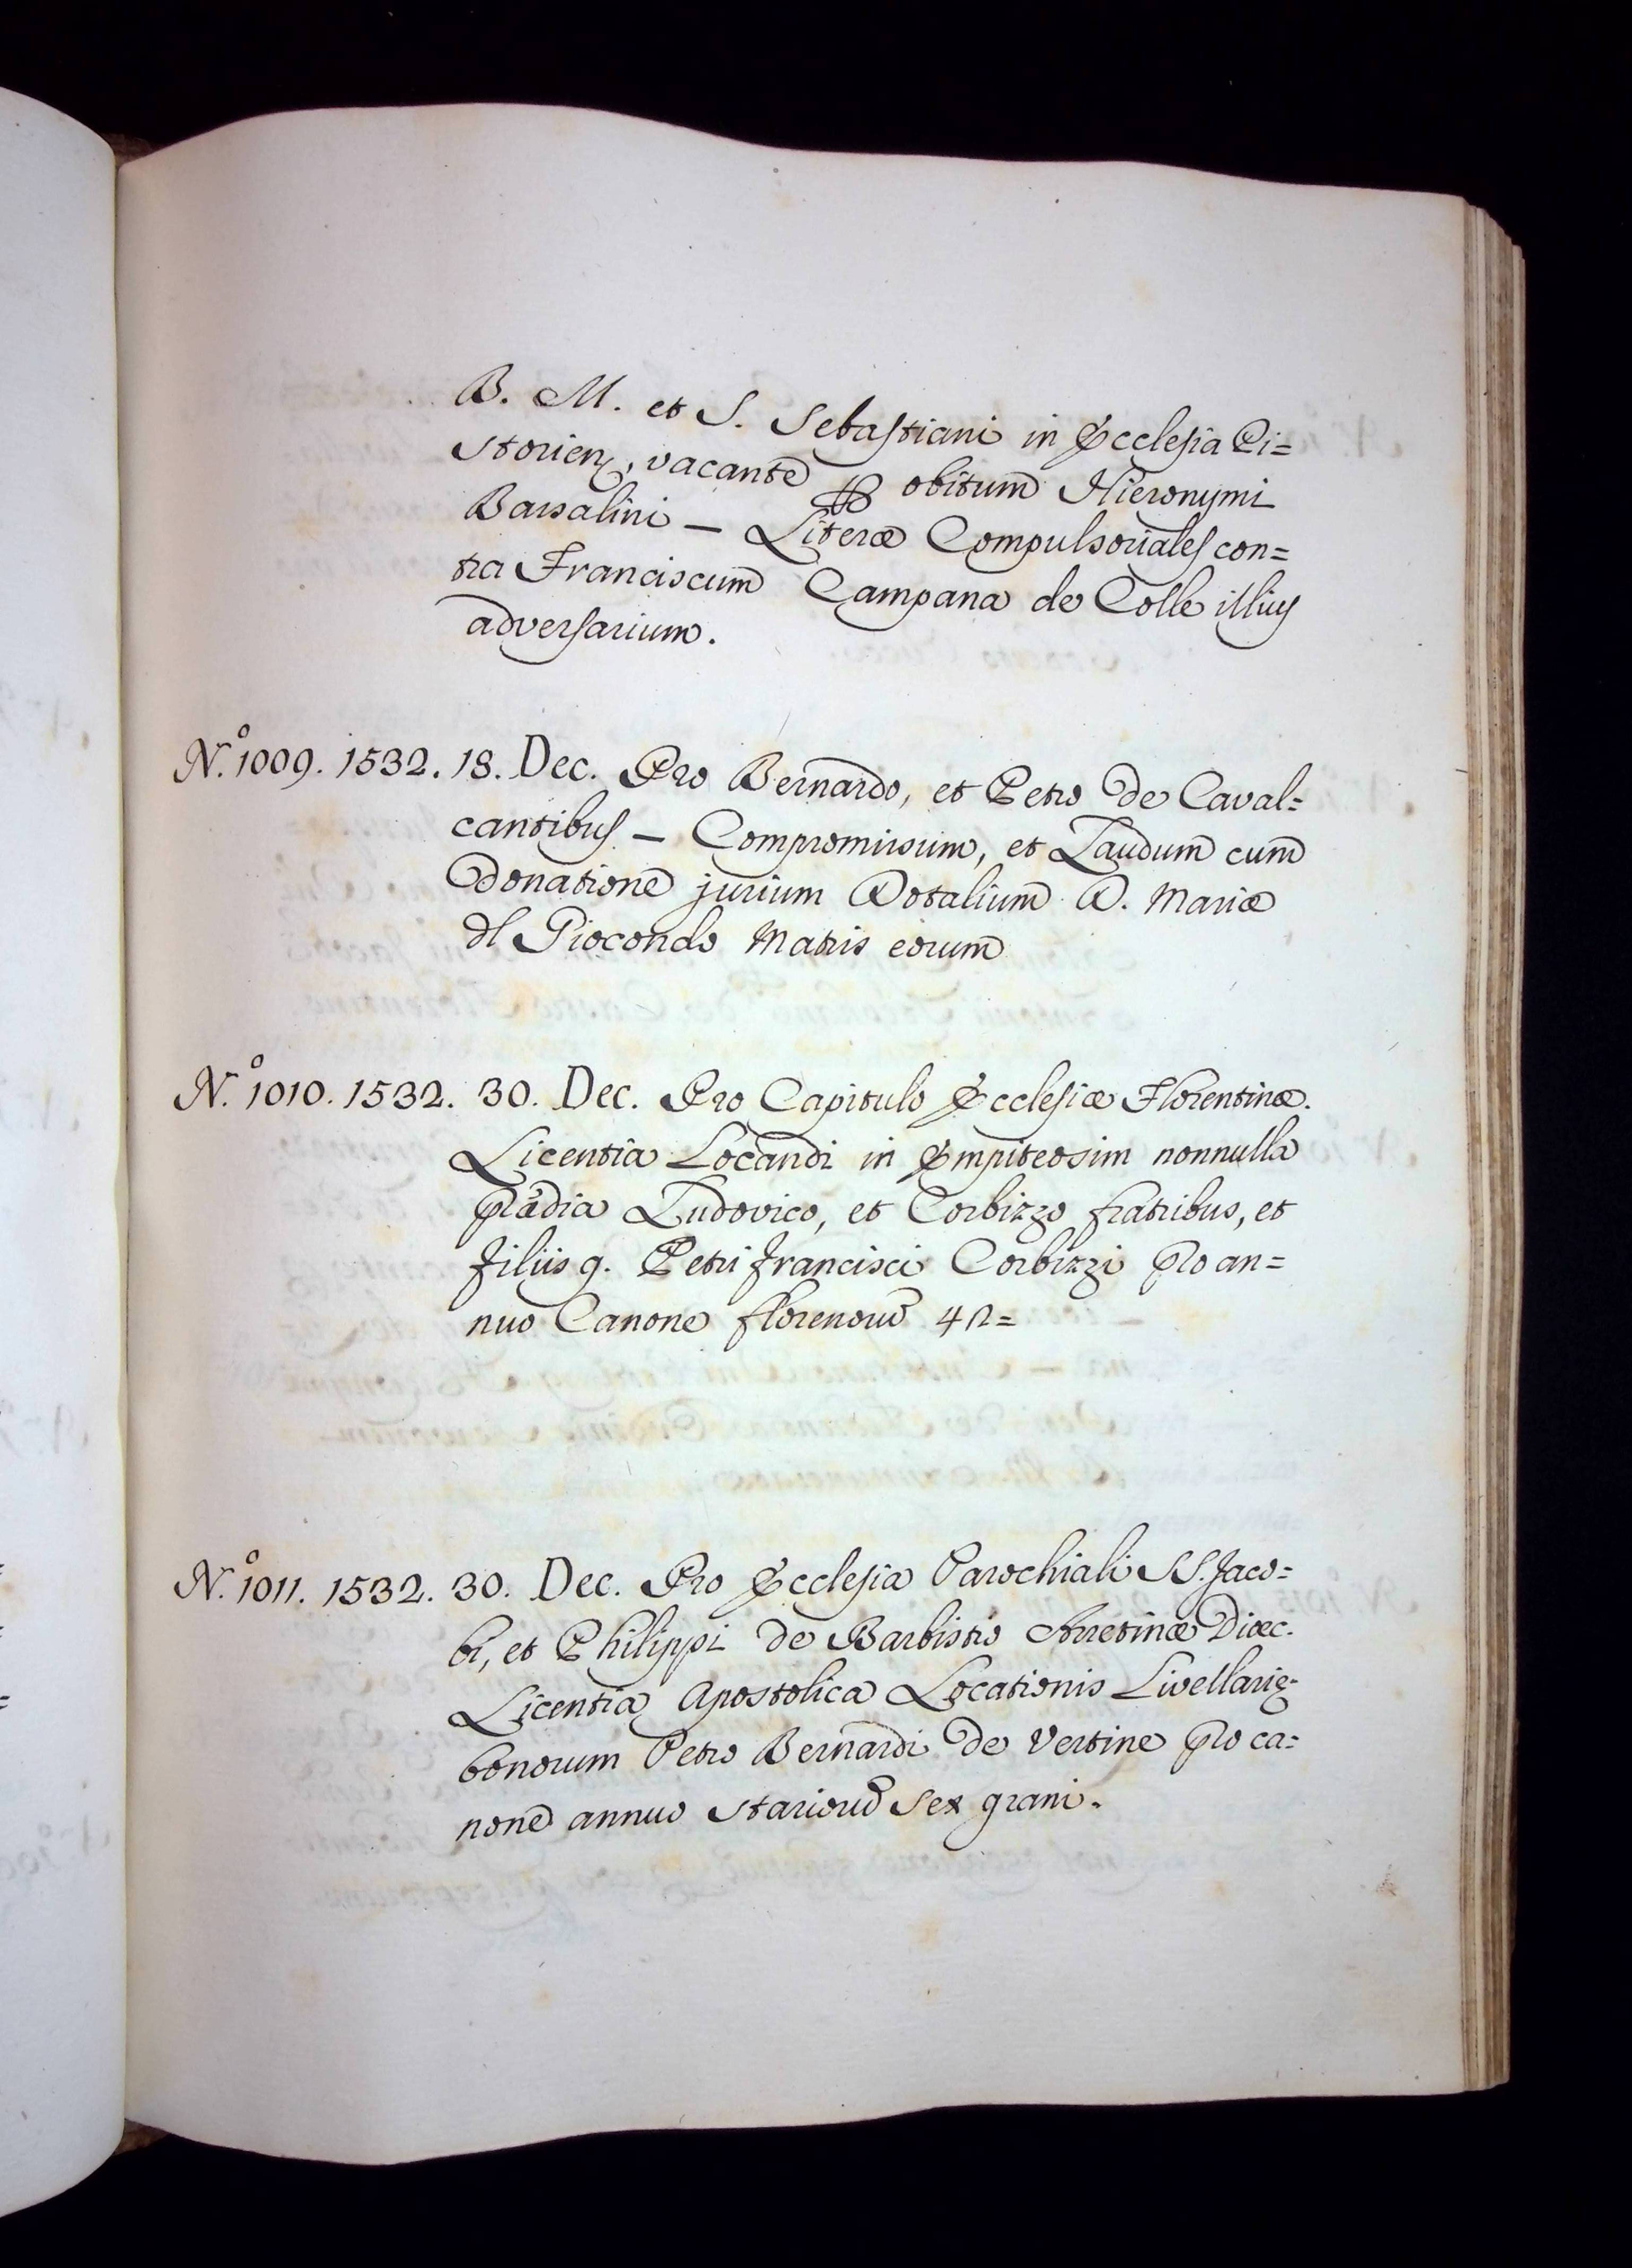 B. M. et S. Sebastiani in Ecclesia Pi=
storien, vacante ꝑ obitum Hieronymi
Barsalini — Literæ Compulsoriales con=
tra Franciscum Campana de Colle illius
adversarium.
N.º 1009. 1532. 18. Dec. Pro Bernardo, et Petro de Caval=
cantibus — Compromissum, et Laudum cum
Donatione jurium Dotalium D. Mariæ
del Giocondo Matris eorum
N.º 1010. 1532. 30. Dec. Pro Capitulo Ecclesiæ Florentinæ.
Licentia Locandi in Empiteosim nonnulla
prædia Ludovico, et Corbizzo fratribus, et
filiis q. Petri francisci Corbizzi pro an=
nuo Canone florenorũ
N.º 1011. 1532. 30. Dec. Pro Ecclesia Parochiali SS. Jaco=
bi, et Philippi de Barbistio Arretinæ Diœc.
Licentia Apostolica Locationis Livellariæ
bonorum Petro Bernardi de Vertine pro ca=
none annuo stariorũ sex grani.